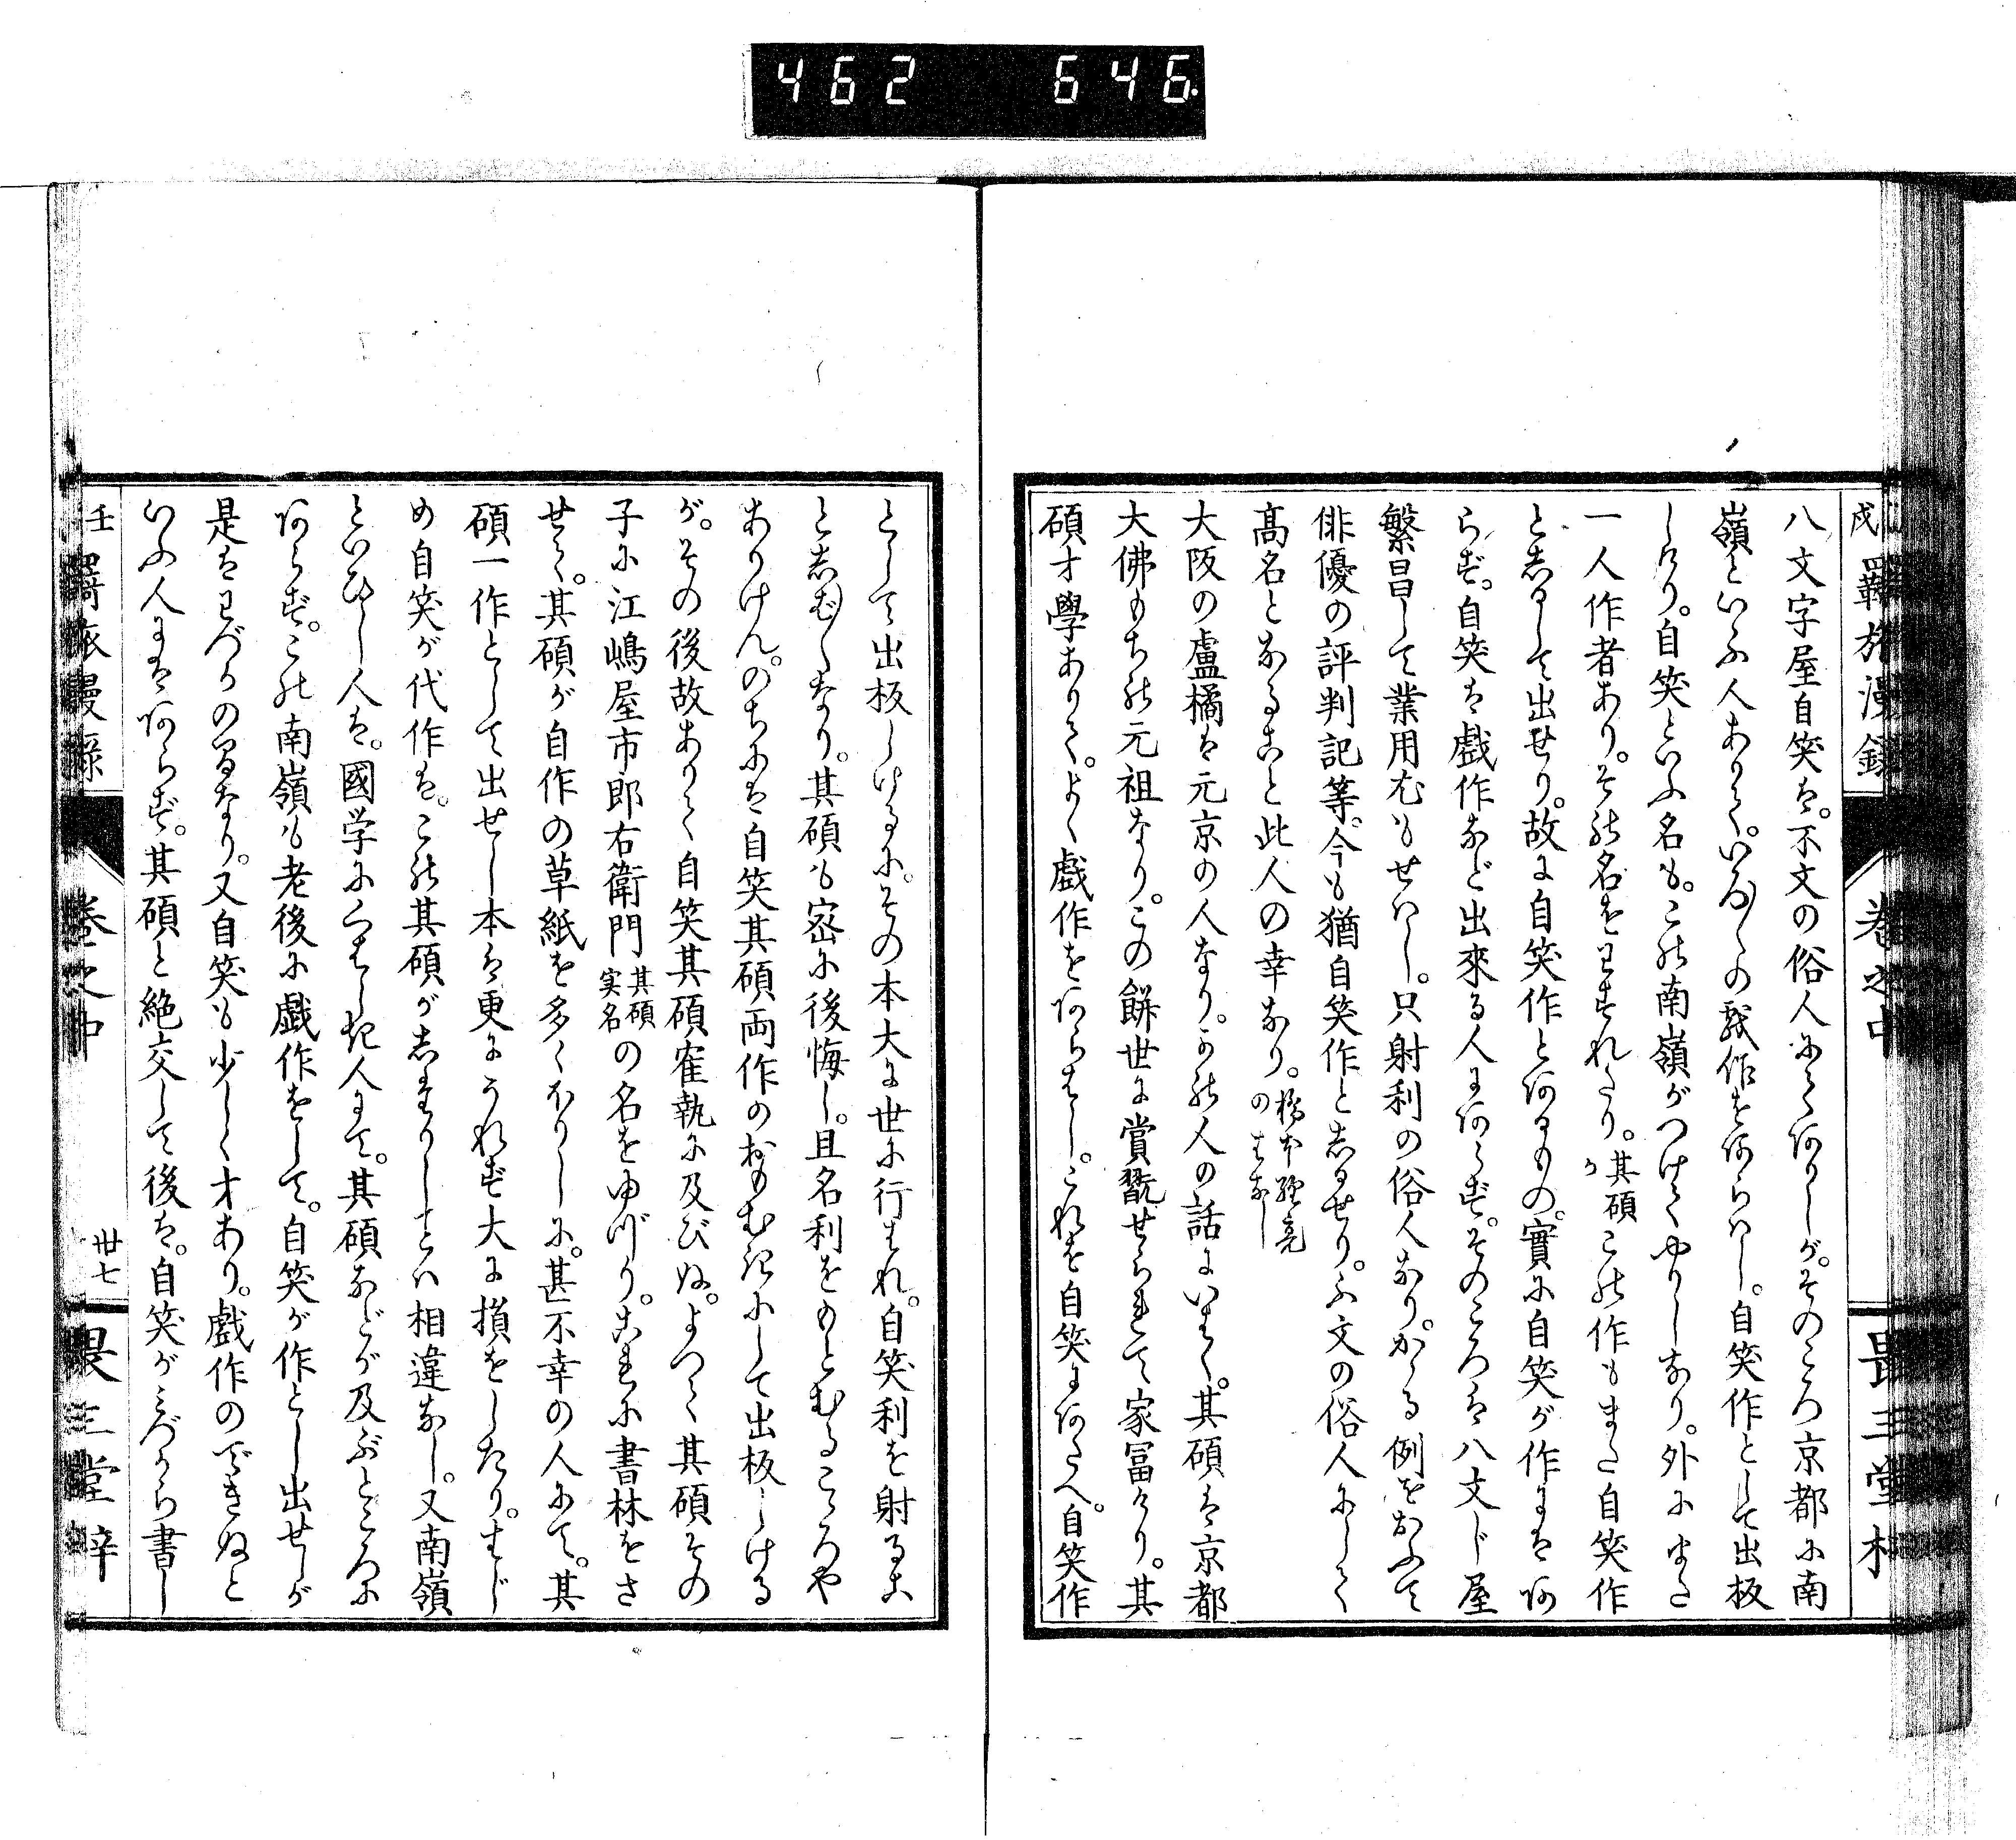 462 646
戌 羈旅漫録 卷之中 畏三堂梓
八文字屋自笑は。不文の俗人にてありしが。そのころ京都に南
嶺といふ人ありて。いろ〳〵の戯作をあらはし。自笑作として出板
しけり。自笑といふ名も。この南嶺がつけてやりしなり。外にまた
一人作者あり。その名をわすれたり。其碩か この作もまた自笑作
としるして出せり。故に自笑作とあるもの。實に自笑が作にはあ
らず。自笑は戯作など出來る人にあらず。そのころは八文じ屋
繁昌して業用尤もせはし。只射利の俗人なり。かゝる例をおふて
俳優の評判記等。今も猶自笑作としるせり。ふ文の俗人にして
高名となること此人の幸なり。橋本經亮のはなし
大阪の盧橘は元京の人なり。この人の話にいはく。其碩は京都
大佛もちの元祖なり。この餅世に賞翫せられて家冨めり。其
碩才學ありて。よく戯作をあらはし。これを自笑にあたへ。自笑作
として出板しけるに。その本大に世に行はれ。自笑利を射るこ
としば〳〵なり。其碩も密に後悔し。且名利をもとむるこゝろや
ありけん。のちには自笑其碩両作のおもむきにして出板しける
が。その後故ありて自笑其碩寉執に及びぬ。よつて其碩その
子に江嶋屋市郎右衛門其碩実名の名をゆづり。これに書林をさ
せて。其碩が自作の草紙を多くほりしに。甚不幸の人にて。其
碩一作として出せし本は更にうれず大に損をしたり。はじ
め自笑が代作を。この其碩がしたりしことは相違なし。又南嶺
といひし人は。國学にくはしき人にて。其碩などが及ぶところに
あらず。この南嶺も老後に戯作をして。自笑が作とし出せしが
是はわづかの間なり。又自笑も少しく才あり。戯作のできぬと
いふ人にはあらず。其碩と絶交して後は。自笑がみづから書し
壬 羇旅漫録 卷之中 丗七 畏三堂梓